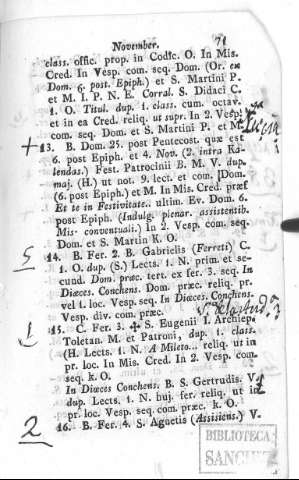 November. 71
class. offic. prop. in Codic. O. In Mis.
Cred. In Vesp. com. seq. Dom. (Or. ex
Dom. 6. post. Epiph.) et S. Martini P.
et M. I. P. N. E. Corral. S. Didaci C.
1. O. Titul. dup. 1. class. cum octav.
et in ea Cred. reliq. ut supr. In 2. Vesp.
com. seq. Dom. et S. Martini P. et M.
+
13. B. Dom. 25. post Pentecost. quæ est
6. post Epiph. et 4. Nov. (2. intra Ka-
lendas.) Fest. Patrocinii B. M. V. dup.
maj. (H.) ut not. 9. lect. et com. Dom.
(6. post Epiph.) et M. In Mis. Cred. præf
Et te in Festivitate.. ultim. Ev. Dom. 6.
post Epiph. (Indulg. plenar. assistentib.
Mis- conventuali.) In 2. Vesp. com. seq.
Dom. et S. Martin K. O.
5
14. B. Fer. 2. B. Gabrielis (Ferreti) C.
1. O. dup. (S.) Lects. 1. N. prim. et se-
cund. Dom. præc. tert. ex fer. 3. seq. In
Diœces. Conchens. Dom. præc. reliq. pr.
vel 1. loc. Vesp. seq. In Diœces. Conchens.
Vesp. div. com. præc.
1
15. C. Fer. 3. ✠ S. Eugenii I. Archiep.
Toletan. M. et Patroni, dup. 1. class.
(H. Lects. 1. N. A Mileto... reliq. ut in
pr. loc. In Mis. Cred. In 2. Vesp. com.
seq. k. O.
In Diœces Conchens. B. S. Gertrudis. V.
dup. Lects. 1. N. huj. fer. reliq. ut in
pr. loc. Vesp. seq. com. præc. k. O.
2
16. B. Fer. 4. S. Agnetis (Assisiens.) V.
BIBLIOTECA